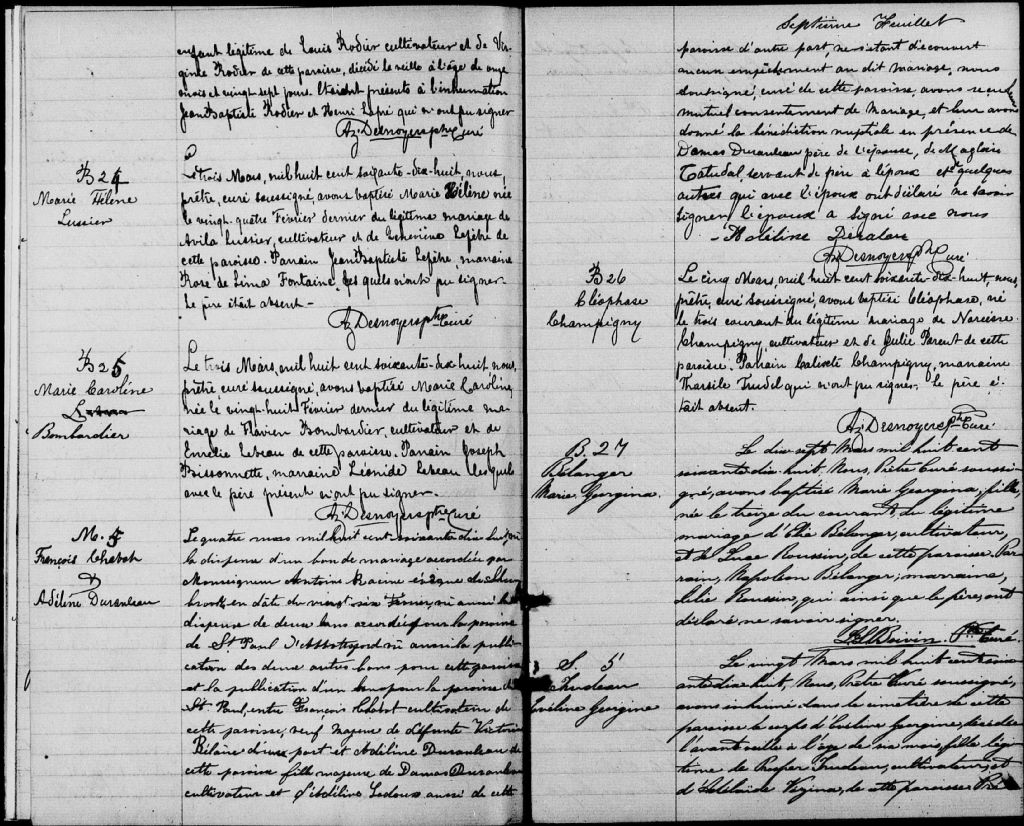 enfant légitime de Louis Rodier cultivateur et de Vir
ginie Rodier de cette paroisse, décédé la veille à l'âge de onze
mois et vingt sept jours. Etaient présents à l'inhumation
Jean Baptiste Rodier et Henri Lapré qui n'ont pu signer
Az Desnoyers ptre Curé
B 24
Marie Hélène
Lussier
Le trois Mars, mil huit cent soixante-dix-huit, nous,
prêtre, curé soussigné, avons baptisé Marie Hélène née
le vingt-quatre Février dernier du légitime mariage de
Avila Lussier, cultivateur et de Lefebre de
cette paroisse. Parrain Jean Baptiste Lefebre, marraine
Rose de Lima Fontaine, les quels n'ont pu signer.
Le père était absent -
Az Desnoyers ptre Curé
B 25
Marie Caroline
Bombardier
Le trois Mars, mil huit cent soixante-dix huit nous,
prêtre, curé soussigné, avons baptisé Marie Caroline,
née le vingt-huit Février dernier du légitime ma-
riage de Flavien Bombardier, cultivateur et de
Emélie Lebeau de cette paroisse. Parrain Joseph
Boissonnette, marraine Léonide Lebeau lesquels
avec le père présent n'ont pu signer.
Az Desnoyers ptre Curé
M. 5
François Chabot
&
Adéline Duranleau
Le quatre mars mil huit cent soixante dix huit
la dispense d'un ban de mariage accordée par
Monseigneur Antoine Racine évêque de Sher
brooke, en date du vingt six Février, vu aussi la
dispense de deux bans accordés pour la paroisse
de St Paul d'Abbotsford vu aussi la publi-
cation des deux autres bans pour cette paroisse
et la publication d'un ban pour la paroisse de
St Paul, entre François Chabot cultivateur de
cette paroisse, veuf majeur de défunte Victoire
d'une part et Adéline Duranleau de
cette paroisse fille majeure de Damas Duranleau
cultivateur et d'Adéline Ledoux aussi de cette
Septième Feuillet
paroisse d'autre part, ne s'étant découvert
aucun empêchement au dit mariage, nous
soussigné, curé de cette paroisse, avons reçu leur
mutuel consentement de mariage, et leur avons
donné la bénédiction nuptiale en présence de
Damas Duranleau père de l'épouse, de
servant de père à l'époux et de quelques
autres qui avec l'époux ont déclaré ne savoir
signer l'epoux a signé avec nous
Az Desnoyers Ptre Curé
B 26
Cléophase
Champigny
Le cinq Mars, mil huit cent soixante-dix-huit, nous,
prêtre, curé soussigné, avons baptisé Cléophase, né
le trois courant du légitime mariage de Narcisse
Champigny, cultivateur et de Julie Parent de cette
paroisse. Parrain Calixte Champigny, marraine
Tharsile Trudel qui n'ont pu signer. Le père é-
tait absent.
Az Desnoyers ptre Curé
B. 27
Bélanger
Marie Georgina.
Le dix-sept Mars mil huit cent
soixante dix-huit, Nous, Prêtre Curé soussi-
gné, avons baptisé Marie Georgina, fille,
née le treize du courant, du légitime
mariage d' Bélanger, cultivateur,
et de Luce Roussin, de cette paroisse. Par
rain, Napoléon Bélanger; marraine,
Célie Roussin, qui ainsi que le père, ont
déclaré ne savoir signer.
Boivin Ptre Curé
S. 5
Trudeau
Eveline Georgine
Le vingt Mars mil huit cent soix
ante dix huit, Nous, Prêtre Curé soussigné,
avons inhumé dans le cimetière de cette
paroisse le corps d'Eveline Georgine, décédée
l'avant veille à l'âge de six mois, fille légi
time de Prosper Trudeau, cultivateur, et
d'Adelaide Vézina, de cette paroisse. Pré